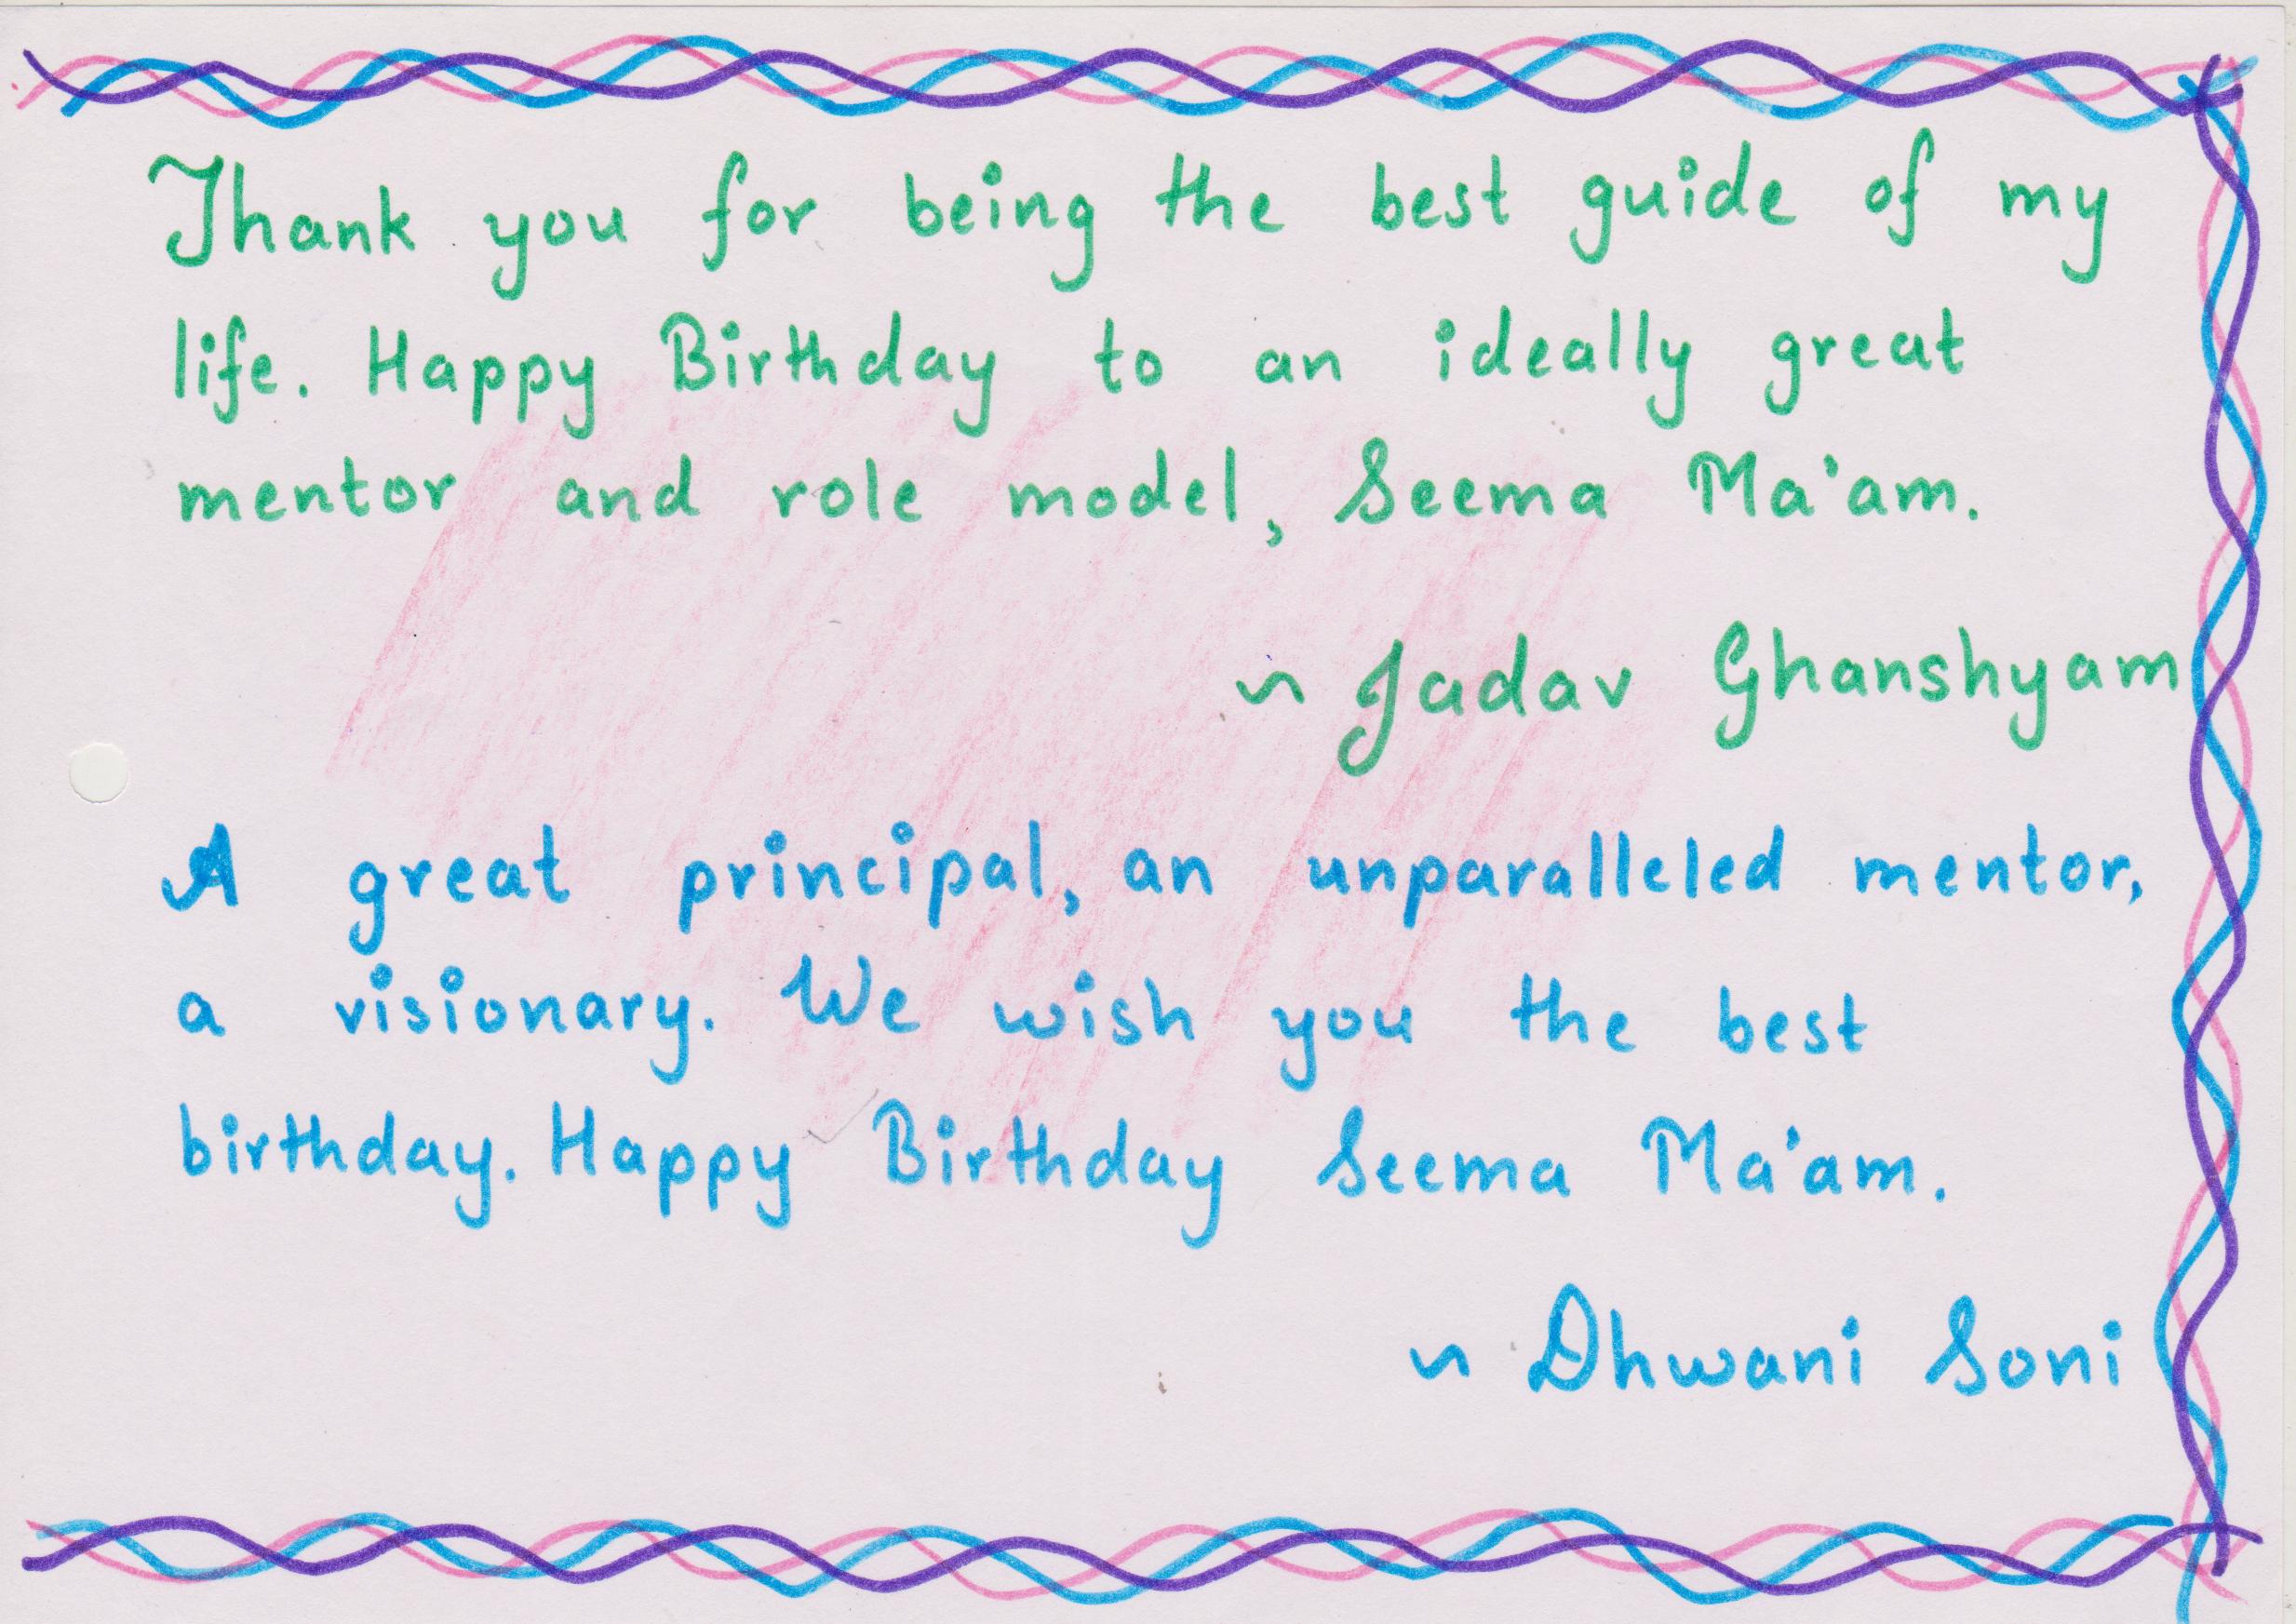 Thank you for being the best guide of my
life. Happy Birthday to an ideally great
mentor and role model, Seema Ma'am.
~ Jadav Ghanshyam
A great principal, an unparalleled mentor,
a visionary. We wish you the best
birthday. Happy Birthday Seema Ma'am.
~ Dhwani Soni